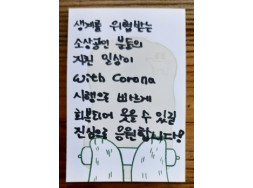 생계를 위협받는
소상공인 분들의
지친 일상이
with Corona
시행으로 빠르게
회복되어 웃을 수 있길
진심으로 응원합니다!